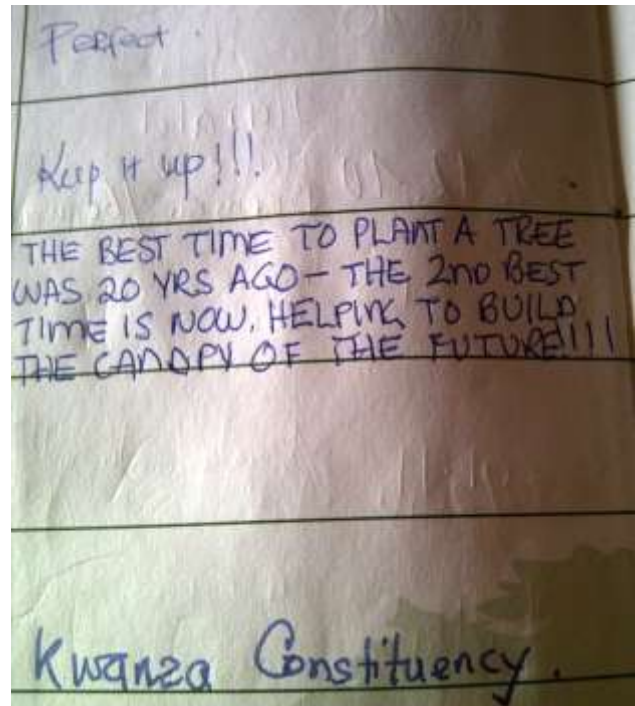 Perfect.
Keep it up!!!
THE BEST TIME TO PLANT A TREE
WAS 20 YRS AGO - THE 2ND BEST
TIME IS NOW. HELPING TO BUILD
THE CANOPY OF THE FUTURE!!!!
Kwanza Constituency.